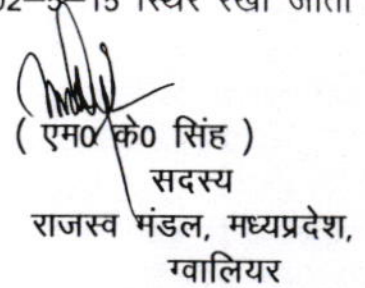 02-5-15 स्थिर रखा जाता
( एम0 के0 सिंह )
सदस्य
राजस्व मंडल, मध्यप्रदेश,
ग्वालियर